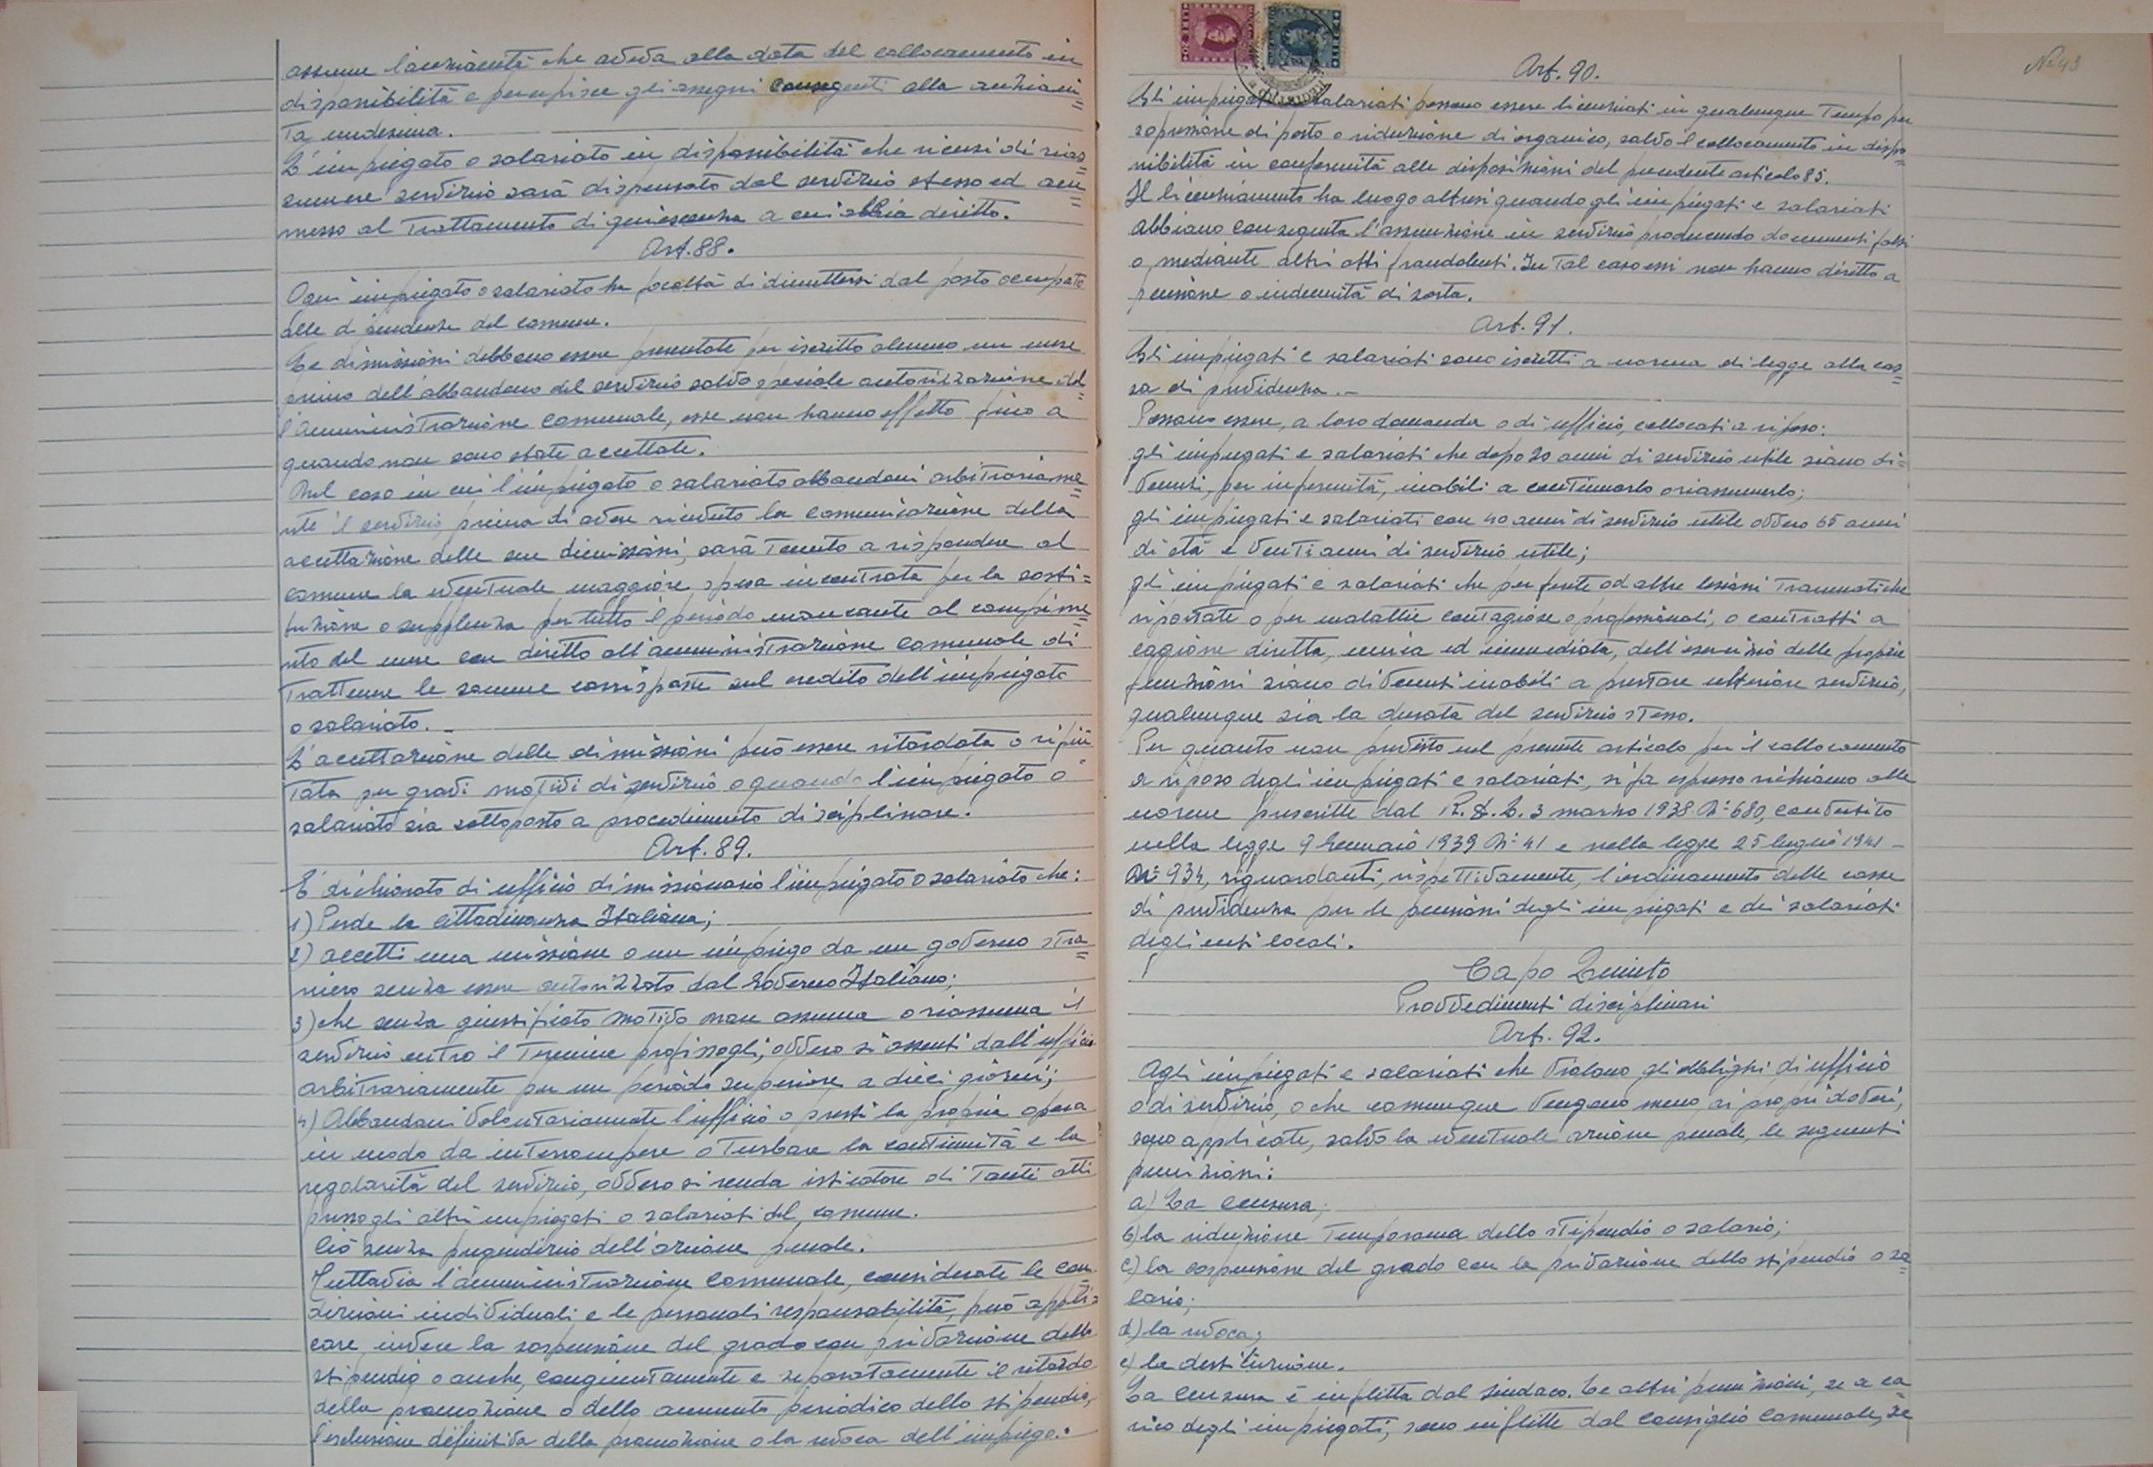 assume l'anzianità che aveva alla data del collocamento in
disponibilità e percepisce gli assegni conseguenti alla anziani=
tà medesima.
L'impiegato o salariato in disponibilità che ricusi di rias=
sumere servizio sarà dispensato dal servizio stesso ed am=
messo al trattamento di quiescenza a cui abbia diritto.
Art. 88.
Ogni impiegato o salariato ha facoltà di dimettersi dal posto occupato
alle dipendenze del comune.
Le dimissioni debbono essere presentate per iscritto almeno un mese
prima dell'abbandono del servizio salvo speciale autorizzazione del=
l'amministrazione comunale, esse non hanno effetto fino a
quando non sono state accettate.
Nel caso in cui l'impiegato o salariato abbandoni arbitrariame=
nte il servizio, prima di avere ricevuto la comunicazione della
accettazione delle sue dimissioni, sarà tenuto a rispondere al
comune la eventuale maggiore spesa incontrata per la sosti=
tuzione o supplenza per tutto il periodo mancante al compime=
nto del mese con diritto all'amministrazione comunale di
trattenere le somme corrisposte sul credito dell'impiegato
o salariato. -
L'accettazione delle dimissioni può essere ritardata o rifiu
tata per gravi motivi di servizio o quando l'impiegato o
salariato sia sottoposto a procedimento disciplinare.
Art. 89.
E' dichiarato di ufficio dimissionario l'impiegato o salariato che:
1) Perde la cittadinanza Italiana;
2) accetti una missione o un impiego da un governo stra=
niero senza essere autorizzato dal Governo Italiano;
3) che senza giustificato motivo non assuma o riassuma il
servizio entro il termine prefissogli, ovvero si assenti dall'ufficio
arbitrariamente per un periodo superiore a dieci giorni;
4) Abbandoni volontariamente l'ufficio o presti la propria opera
in modo da interrompere o turbare la continuità e la
regolarità del servizio, ovvero si renda istigatore di tanti atti
presso gli altri impiegati o salariati del comune.
Ciò senza pregiudizio dell'azione penale.
Tuttavia l'amministrazione comunale, considerate le con=
dizioni individuali e le personali responsabilità, può appli=
care invece la sospensione del grado con privazione dello
stipendio o anche, congiuntamente e separatamente il ritardo
della promozione o dello aumento periodico dello stipendio,
l'esclusione definitiva della promozione o la revoca dell'impiego.
Nº 43
Art. 90.
Gli impiegati e salariati possono essere licenziati in qualunque tempo per
sopressione di posto o riduzione di organico, salvo il collocamento in dispo=
nibilità in conformità alle disposizioni del precedente articolo 85.
Il licenziamento ha luogo altresì quando gli impiegati e salariati
abbiano conseguita l'assunzione in servizio producendo documenti falsi
o mediante altri atti fraudolenti. In tal caso essi non hanno diritto a
pensione o indennità di sorta.
Art. 91.
Gli impiegati e salariati sono iscritti a norma di legge alla cas=
sa di previdenza. -
Possono essere, a loro domanda o di ufficio, collocati a riposo:
gli impiegati e salariati che dopo 20 anni di servizio utile siano di=
venuti, per infermità, inabili a continuarlo o riassumerlo;
gli impiegati e salariati con 40 anni di servizio utile ovvero 65 anni
di età e venti anni di servizio utile;
gli impiegati e salariati che per ferite od altre lesioni traumatiche
riportate o per malattie contagiose o professionali, o contratti a
cagione diretta, unica ed immediata, dell'esercizio delle proprie
funzioni siano divenuti inabili a prestare ulteriore servizio,
qualunque sia la durata del servizio stesso.
Per quanto non previsto nel presente articolo per il collocamento
a riposo degli impiegati e salariati, si fa espresso richiamo alle
norme prescritte dal R. D. L. 3 marzo 1938 Nº 680, convertito
nella legge 9 Gennaio 1939 Nº 41 e nella legge 25 luglio 1941 -
Nº 934, riguardanti, rispettivamente, l'ordinamento delle casse
di previdenza per le pensioni degli impiegati e dei salariati
degli enti locali.
Capo Quinto
Provvedimenti disciplinari
Art. 92.
Agli impiegati e salariati che violano gli obblighi di ufficio
o di servizio, o che comunque vengano meno ai propri doveri,
sono applicate, salvo la eventuale azione penale, le seguenti
punizioni:
a) La censura;
b) la riduzione temporanea dello stipendio o salario;
c) la sospensione del grado con la privazione dello stipendio o sa=
lario;
d) la revoca;
e) la destituzione.
La censura è inflitta dal Sindaco. Le altri punizioni, se a ca=
rico degli impiegati, sono inflitte dal consiglio comunale, se